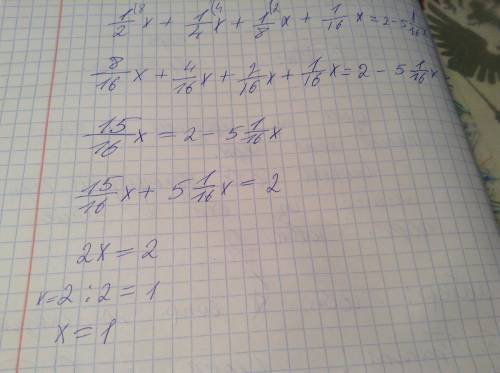 1/2⁽⁸x + 1/4⁽⁴x + 1/8⁽²x + 1/16 x = 2 - 5 1/16 x
8/16 x + 4/16 x + 2/16 x + 1/16 x = 2 - 5 1/16 x
15/16 x = 2 - 5 1/16 x
15/16 x + 5 1/16 x = 2
2x = 2
x = 2 : 2 = 1
x = 1